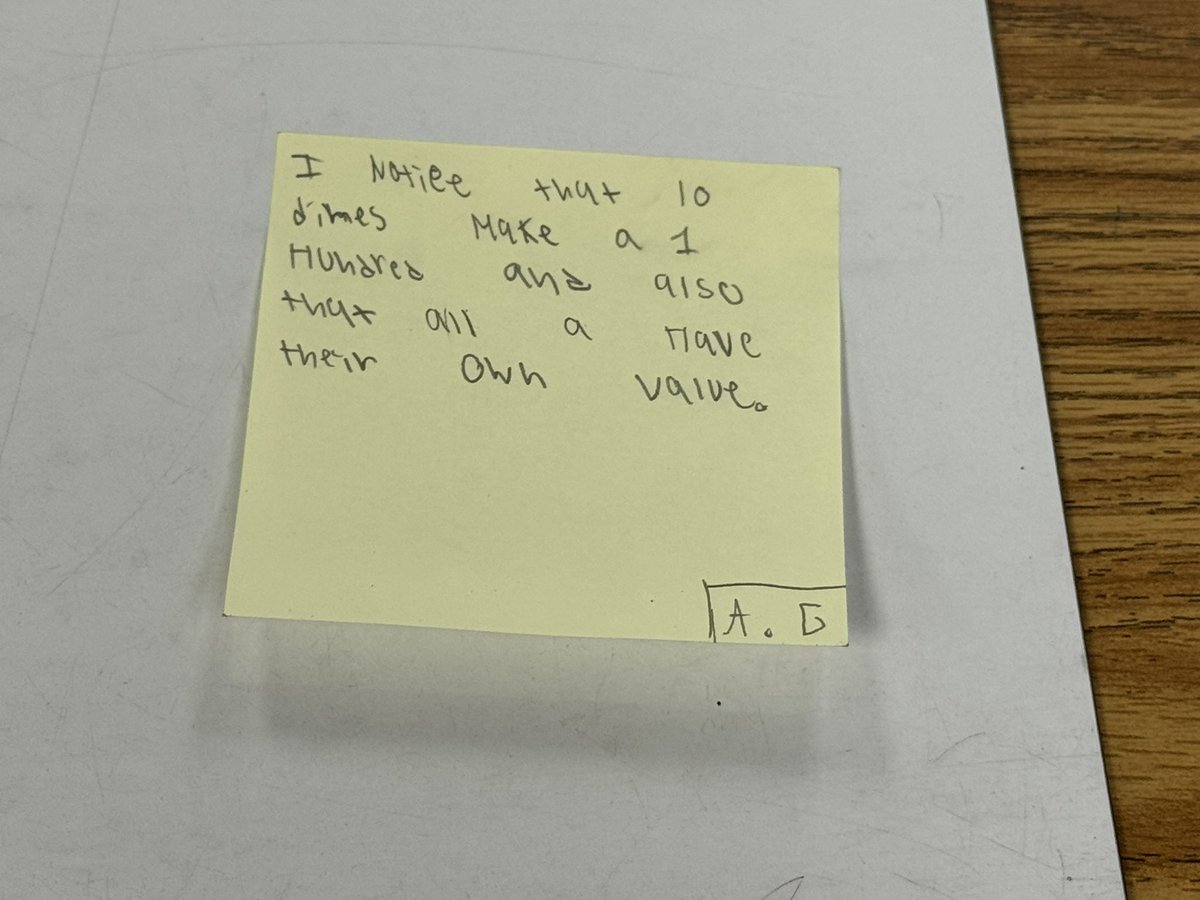 I Notice that 10
dimes Make a 1
Hundred and also
that all a Have
their own value.
A. G